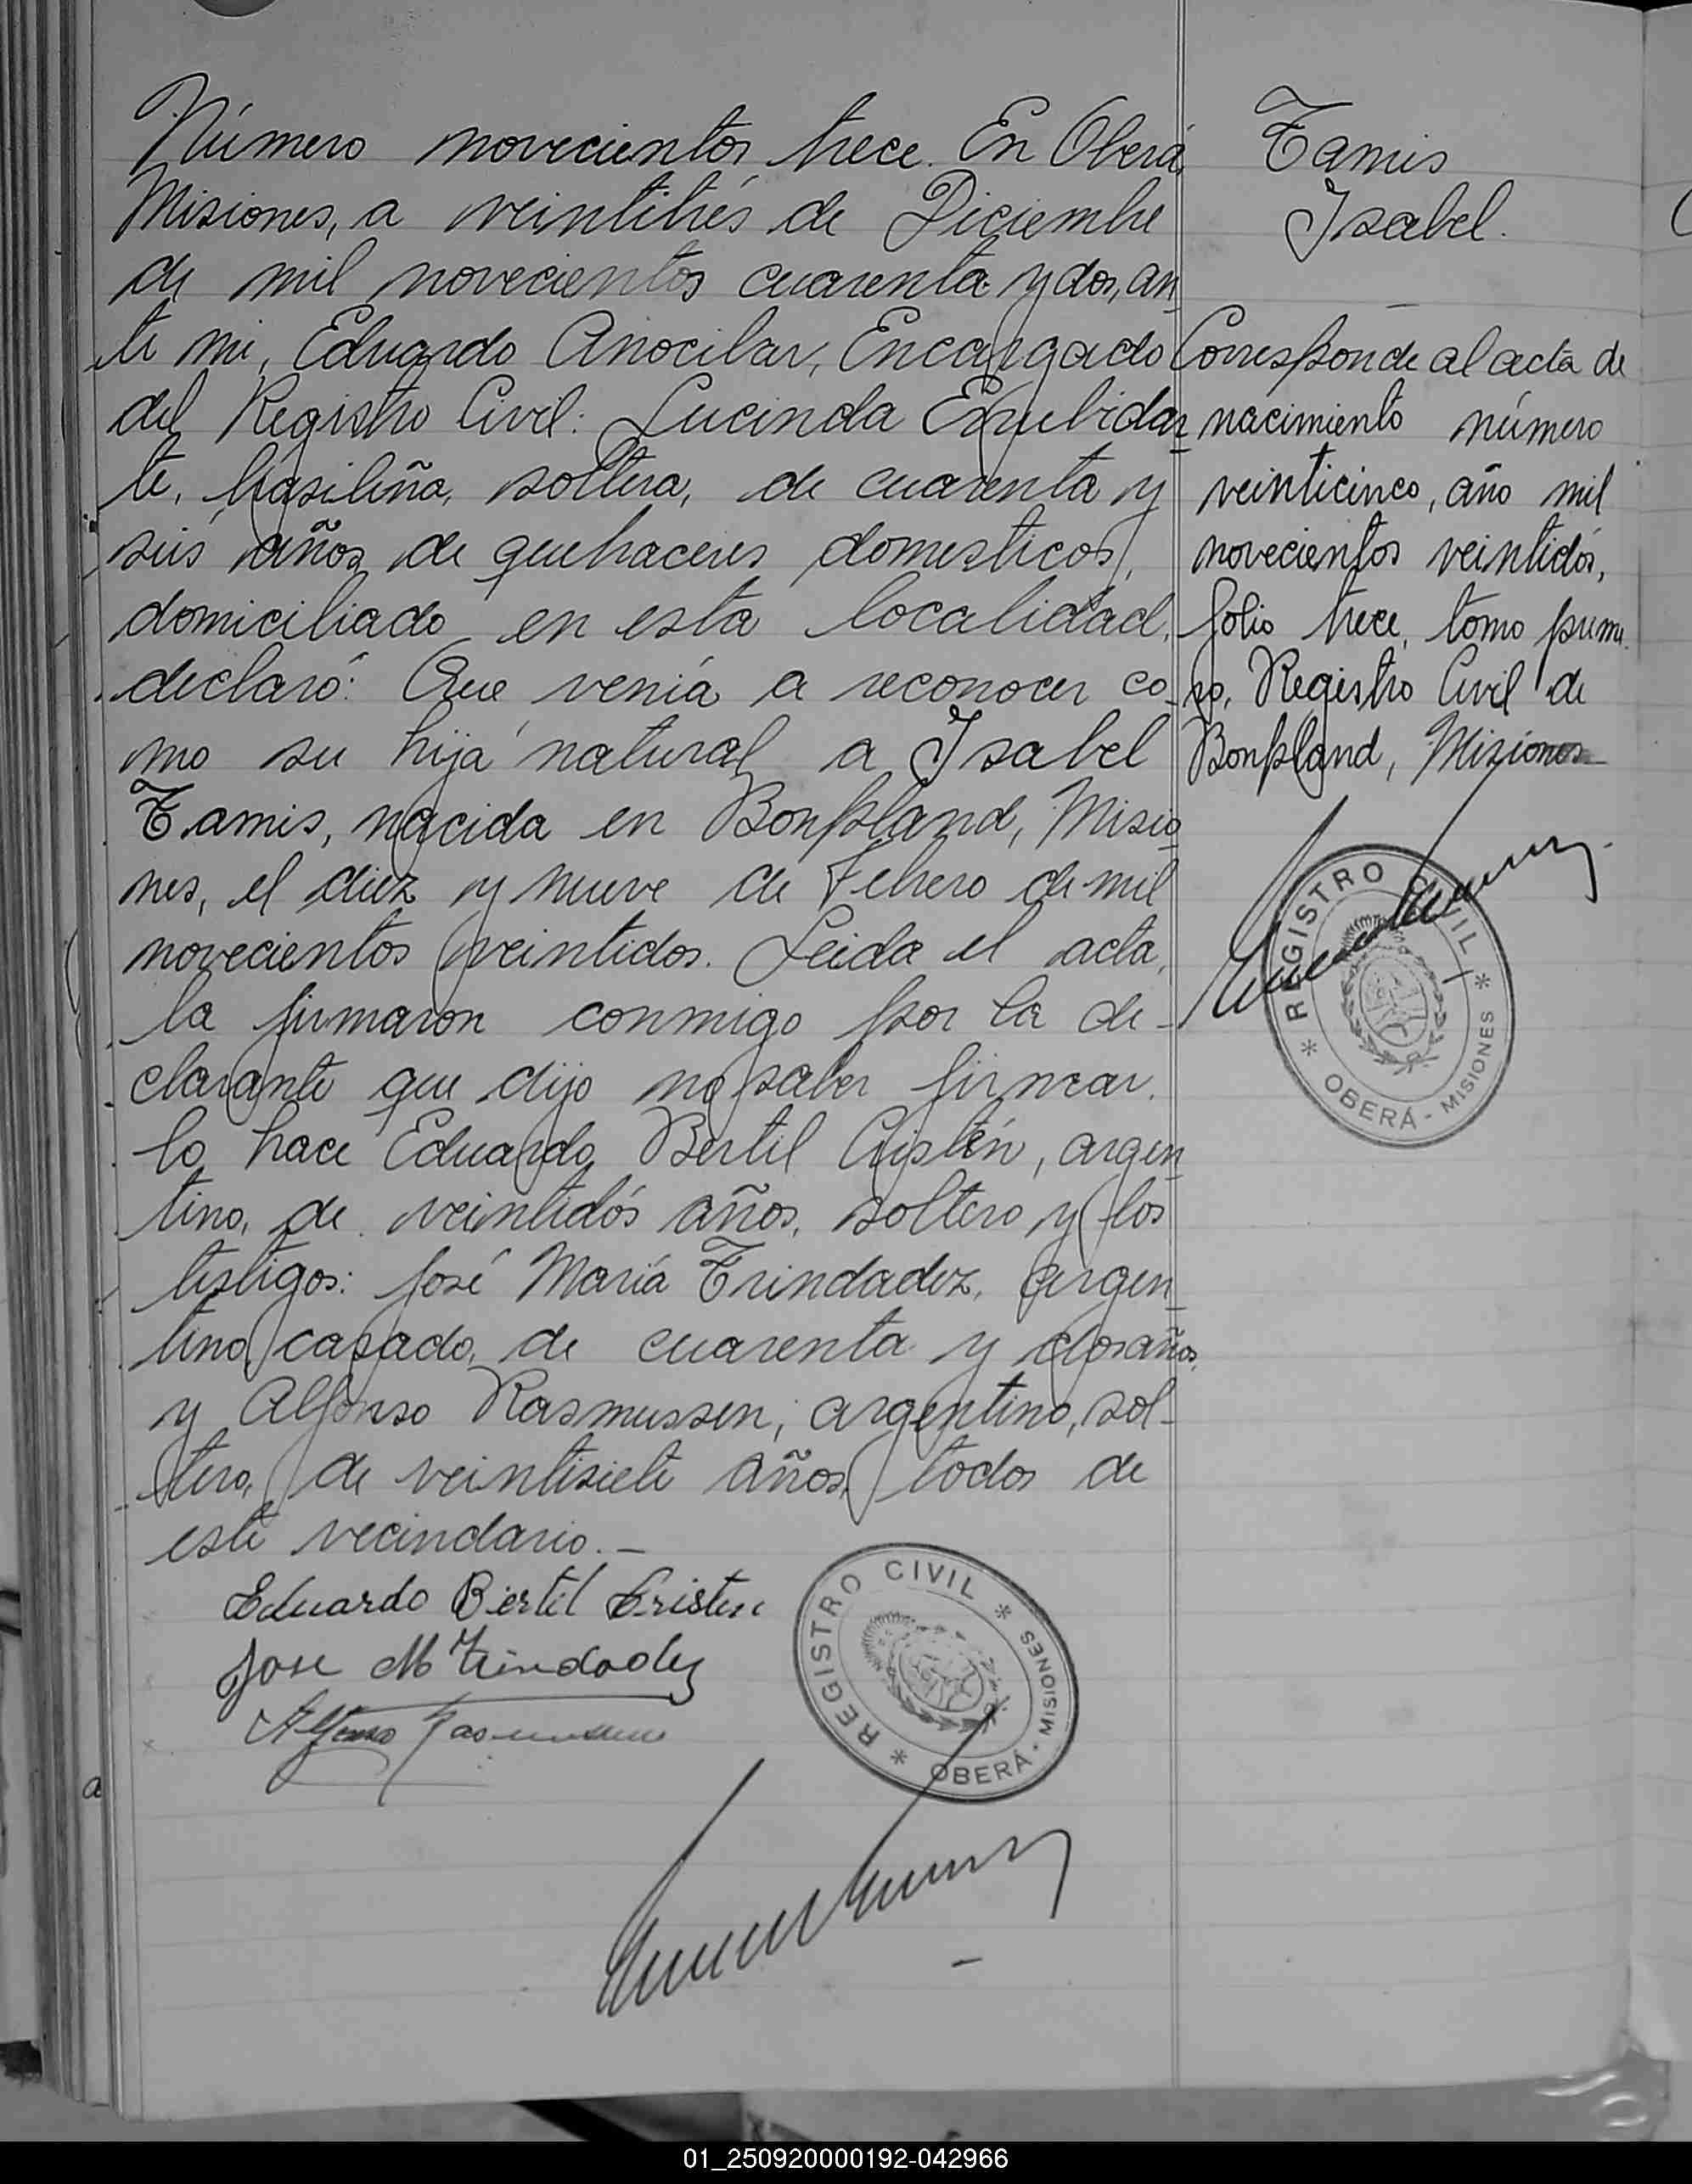 Número novecientos trece. En Oberá,
Misiones, a veintitrés de Diciembre
de mil novecientos cuarenta y dos, an
te mi, Eduardo Anocibar, Encargado
del Registro Civil: Lucinda
te, brasileña, soltera, de cuarenta y
seis años de quehaceres domesticos,
domiciliado en esta localidad,
declaró: Que venia a reconocer co-
mo su hija natural a Isabel
Tamis, nacida en Bonpland, Misio
nes, el diez y nueve de Febrero de mil
novecientos veintidos. Leida el acta,
la firmaron conmigo por la de-
clarante que dijo no saber firmar.
lo hace Eduardo Bertil Cristén, argen
tino, de veintidós años, soltero y los
testigos: José María Trindadez, argen
tino, casado, de cuarenta y dos años,
y Alfonso Rasmussen, argentino, sol-
tero, de veintisiete años, todos de
este vecindario.-
Eduardo Bertil Cristen
Jose M Trindadez
Alfonso Rasmussen
REGISTRO CIVIL
* OBERÁ - MISIONES *
Tamis
Isabel.
Corresponde al acta de
nacimiento número
veinticinco, año mil
novecientos veintidós,
folio trece, tomo prime
ro, Registro Civil de
Bonpland, Misiones
REGISTRO CIVIL
* OBERÁ - MISIONES *
a
01_250920000192-042966